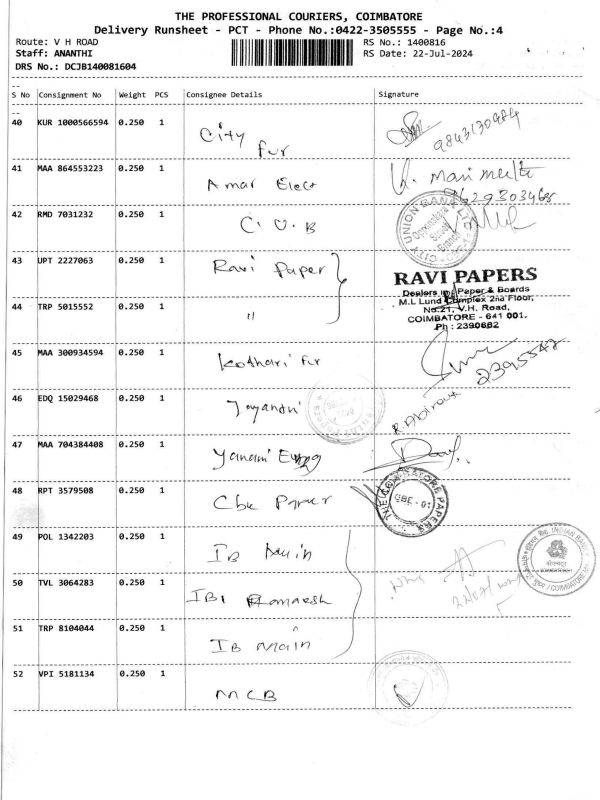 THE PROFESSIONAL COURIERS, COIMBATORE
Delivery Runsheet - PCT - Phone No.:0422-3505555 - Page No.:4
Route: V H ROAD
RS No.: 1400816
Staff: ANANTHI
RS Date: 22-Jul-2024
DRS No.: DCJB140081604
S No Consignment No Weight PCS Consignee Details Signature
40 KUR 1000566594 0.250 1 City Fur 9843130484
41 MAA 864553223 0.250 1 Amar Elect
42 RMD 7031232 0.250 1 C.U.B
CITY UNION BANK LTD
43 UPT 2227063 0.250 1 Ravi Paper
RAVI PAPERS
Dealers in: Paper & Boards
M.L Lund Complex 2nd Floor,
No.21, V.H. Road,
COIMBATORE - 641 001.
Ph : 2390662
44 TRP 5015552 0.250 1 "
45 MAA 300934594 0.250 1 Kothari Fur 2395547
46 EDQ 15029468 0.250 1 Jayanthi
47 MAA 704384408 0.250 1 Yanami
48 RPT 3579508 0.250 1 Cbe Paper
THE COIMBATORE PAPERS
49 POL 1342203 0.250 1 IB Main
INDIAN BANK
COIMBATORE
50 TVL 3064283 0.250 1 IB
51 TRP 8104044 0.250 1 IB Main
52 VPI 5181134 0.250 1 MCB